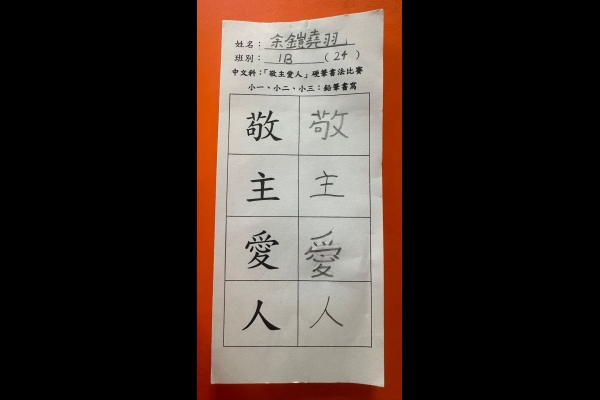 姓名：余鎧堯羽
班別：1B（24）
中文科：「敬主愛人」硬筆書法比賽
小一、小二、小三：鉛筆書寫
敬 敬
主 主
愛 愛
人 人